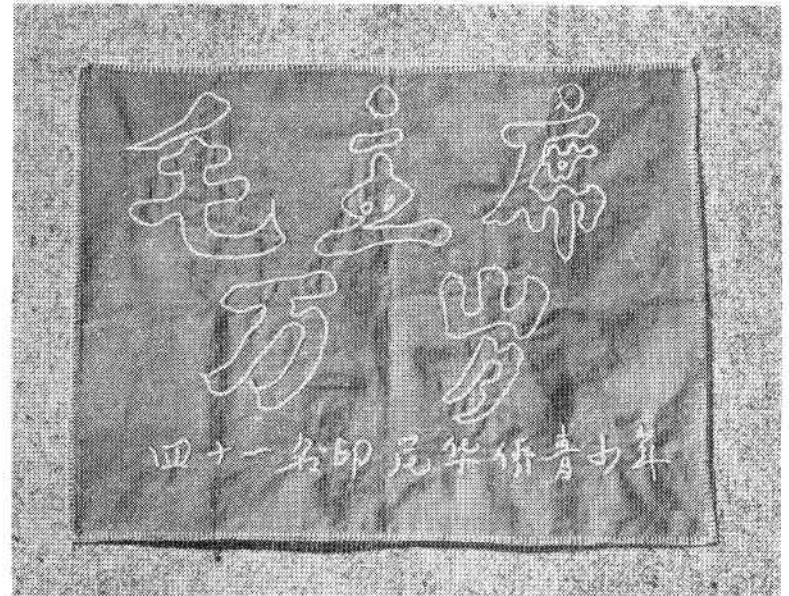 毛主席
万岁
四十一名印尼华侨青少年